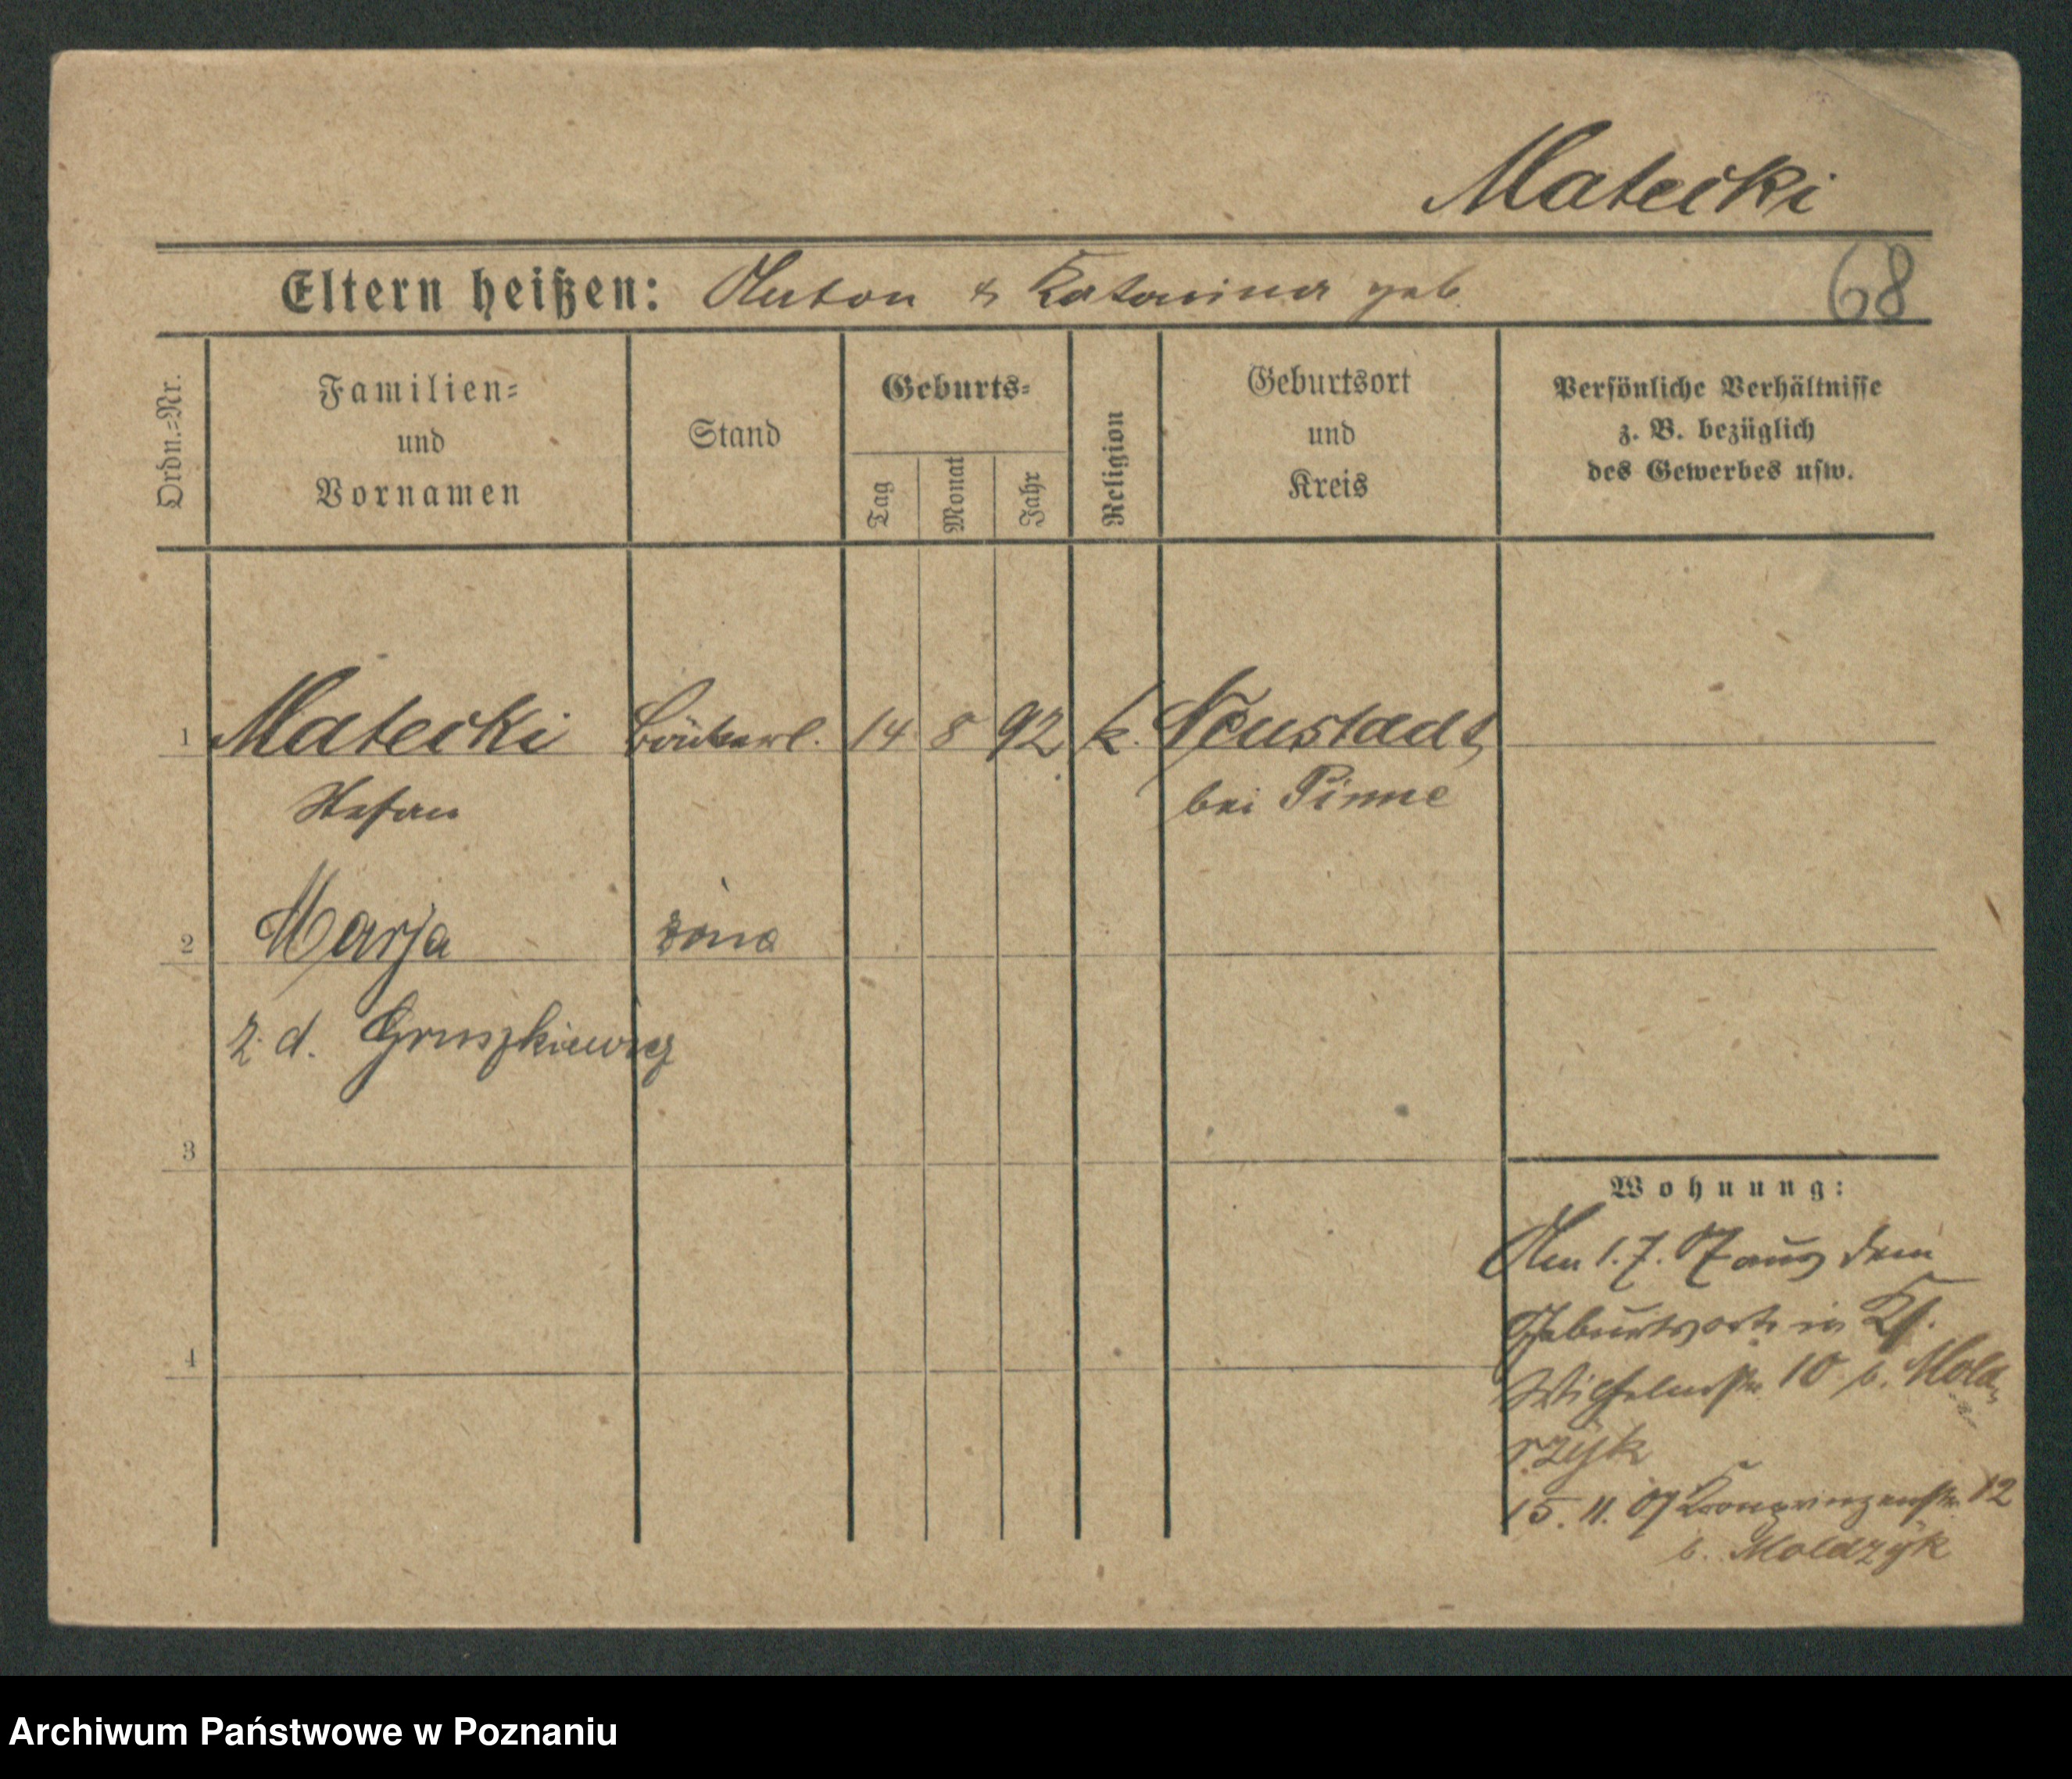 Matecki
Eltern heißen: Anton & Katarina geb.
68
Ordn.=Nr.
Familien=
und
Vornamen
Stand
Geburts=
Tag
Monat
Jahr
Religion
Geburtsort
und
Kreis
Persönliche Verhältnisse
z. B. bezüglich
des Gewerbes usw.
1 Matecki 14 8 92 k. Neustadt
Stefan bei Pinne
2 Marja żona
z d. Gruszkiewicz
3
Wohnung:
Am 1. 7. 07 aus dem
Geburtsorte in
4
Wilhelmstr. 10 b.
rzyk
15. 11. 07 Kronprinzenstr. 12
b.
Archiwum Państwowe w Poznaniu